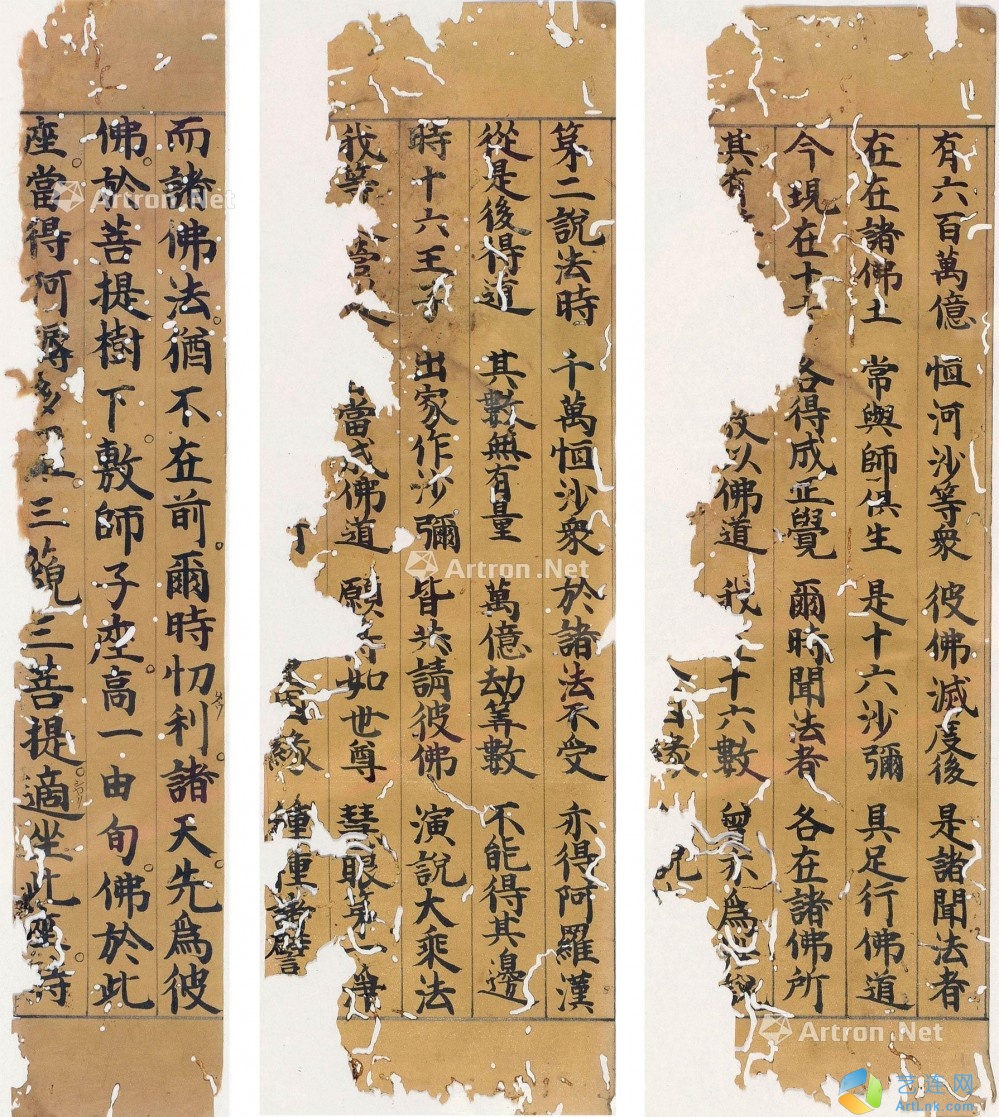 而諸佛法猶不在前爾時忉利諸天先爲彼
佛於菩提樹下敷師子座高一由旬佛於此
座當得阿耨多三藐三菩提適坐此座時
第二說法時 千萬恒沙衆 於諸法不受 亦得阿羅漢
從是後得道 其數無有量 萬億劫筭數 不能得其邊
時十六王子 出家作沙彌 皆共請彼佛 演說大乘法
我等營 當成佛道 願如世尊 慧眼第一淨
因緣 種種諸譬
有六百萬億 恒河沙等衆 彼佛滅度後 是諸聞法者
在在諸佛土 常與師俱生 是十六沙彌 具足行佛道
今現在十 各得成正覺 爾時聞法者 各在諸佛所
其有 教以佛道 我在十六數 曾亦爲說
因緣
Artron.Net
Artron.Net
Artron.Net
艺连网
ArtLink.com